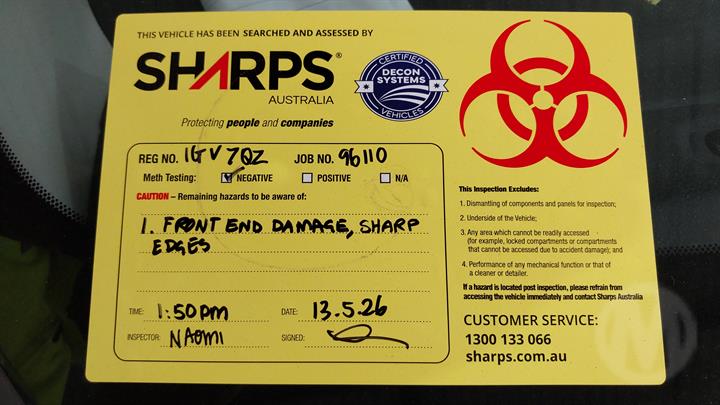 THIS VEHICLE HAS BEEN SEARCHED AND ASSESSED BY
SHARPS®
AUSTRALIA
CERTIFIED
DECON
SYSTEMS
VEHICLES
Protecting people and companies
REG NO. 1GV7QZ JOB NO. 96110
Meth Testing: NEGATIVE POSITIVE N/A
CAUTION – Remaining hazards to be aware of:
1. FRONT END DAMAGE, SHARP
EDGES
TIME: 1:50pm DATE: 13.5.26
INSPECTOR: NAOMI SIGNED:
This Inspection Excludes:
1. Dismantling of components and panels for inspection;
2. Underside of the Vehicle;
3. Any area which cannot be readily accessed
(for example, locked compartments or compartments
that cannot be accessed due to accident damage); and
4. Performance of any mechanical function or that of
a cleaner or detailer.
If a hazard is located post inspection, please refrain from
accessing the vehicle immediately and contact Sharps Australia
CUSTOMER SERVICE:
1300 133 066
sharps.com.au